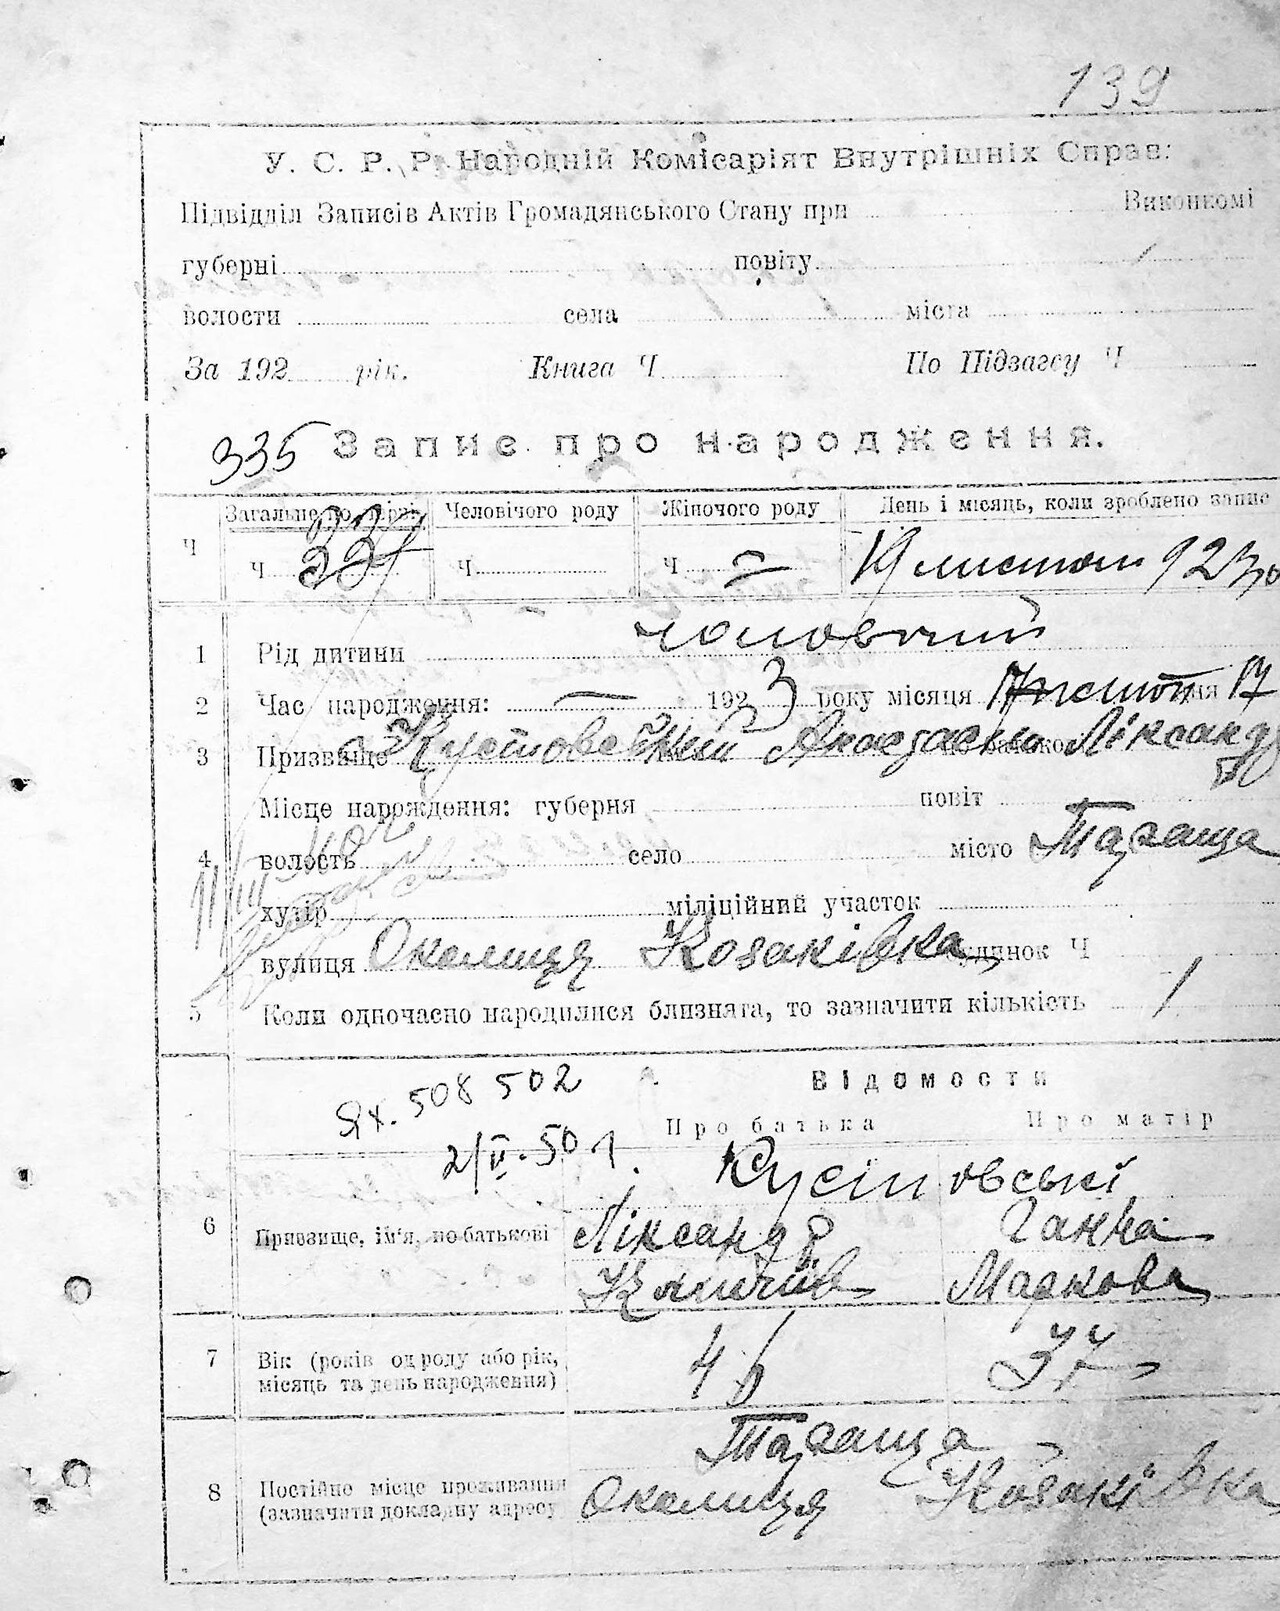 139
У. С. Р. Р. Народній Комісаріят Внутрішніх Справ:
Підвідділ Записів Актів Громадянського Стану при Виконкомі
губерні повіту
волости села міста
За 192 рік. Книга Ч По Підзагсу Ч
335 Запис про народження.
Загальне по Человічого роду Жіночого роду День і місяць, коли зроблено запис
Ч Ч Ч Ч 19 листоп 923
1 Рід дитини чоловічий
2 Час народження: — 1923 року місяця 17
3 Призвище Ліксандр
Місце нарождення: губерня повіт
4 волость село місто Тараща
хутір міліційний участок
вулиця Околиця Козаківка будинок Ч
5 Коли одночасно народилися близнята, то зазначити кількість 1
Відомости
Ях. 508502
Про батька Про матір
2/II-50 г.
6 Призвище, ім'я, по-батькові Ліксандр Ганна
Маркова
7 Вік (років од роду або рік, місяць та день народження) 46
Тараща
8 Постійно місце проживання (зазначити докладну адресу Околиця Козаківка